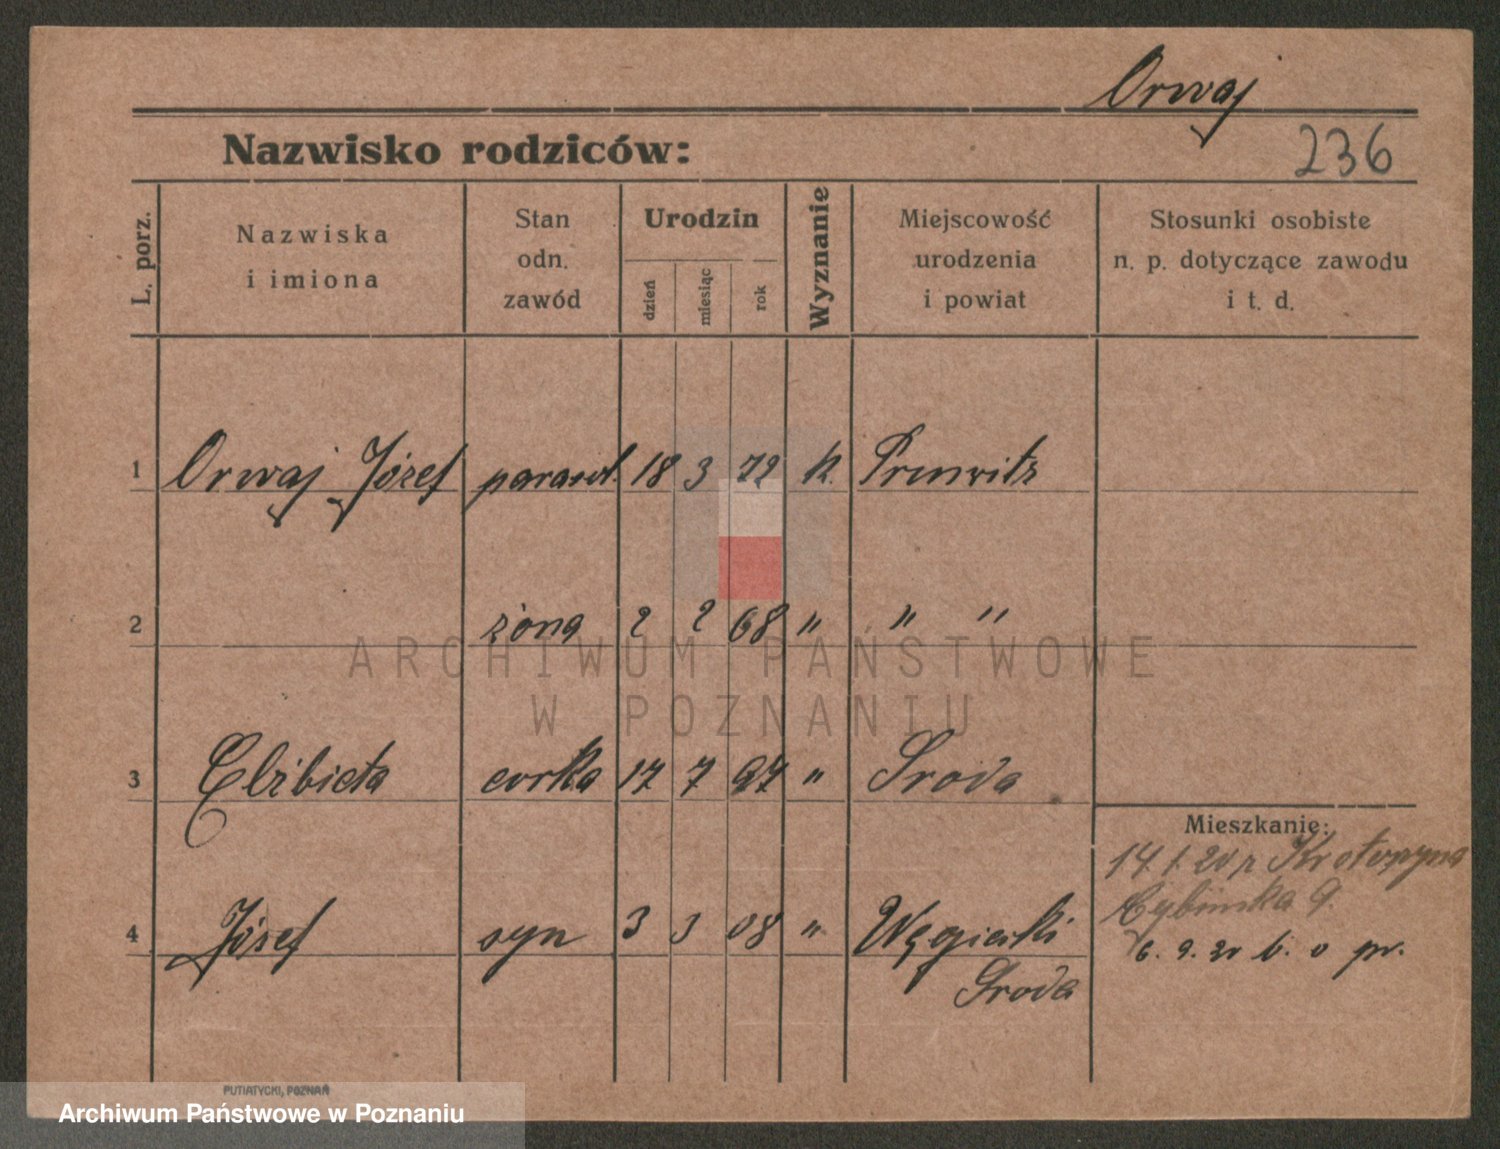 Orwaj
Nazwisko rodziców:
236
L. porz.
Nazwiska
i imiona
Stan
odn.
zawód
Urodzin
dzień
miesiąc
rok
Wyznanie
Miejscowość
urodzenia
i powiat
Stosunki osobiste
n. p. dotyczące zawodu
i t. d.
1 Orwaj Józef 18 3 72 k.
2 żona 2 2 68 " " "
3 Elżbieta corka 17 7 97 " Sroda
Mieszkanie:
14 1. 20 z Krotoszyna
4 Józef syn 3 3 08 " Węgierki
9.
6. 9. 20 b. o pr.
Sroda
PUTIATYCKI, POZNAŃ
ARCHIWUM PAŃSTWOWE
W POZNANIU
Archiwum Państwowe w Poznaniu